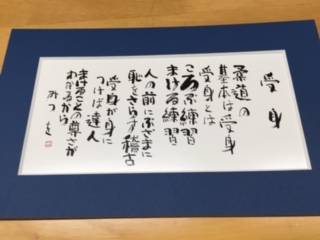 受身
柔道の
基本は受身
受身とは
ころぶ練習
まける練習
人の前にぶざまに
恥をさらす稽古
受身が身に
つけば達人
まけることの尊さが
わかるから
みつを